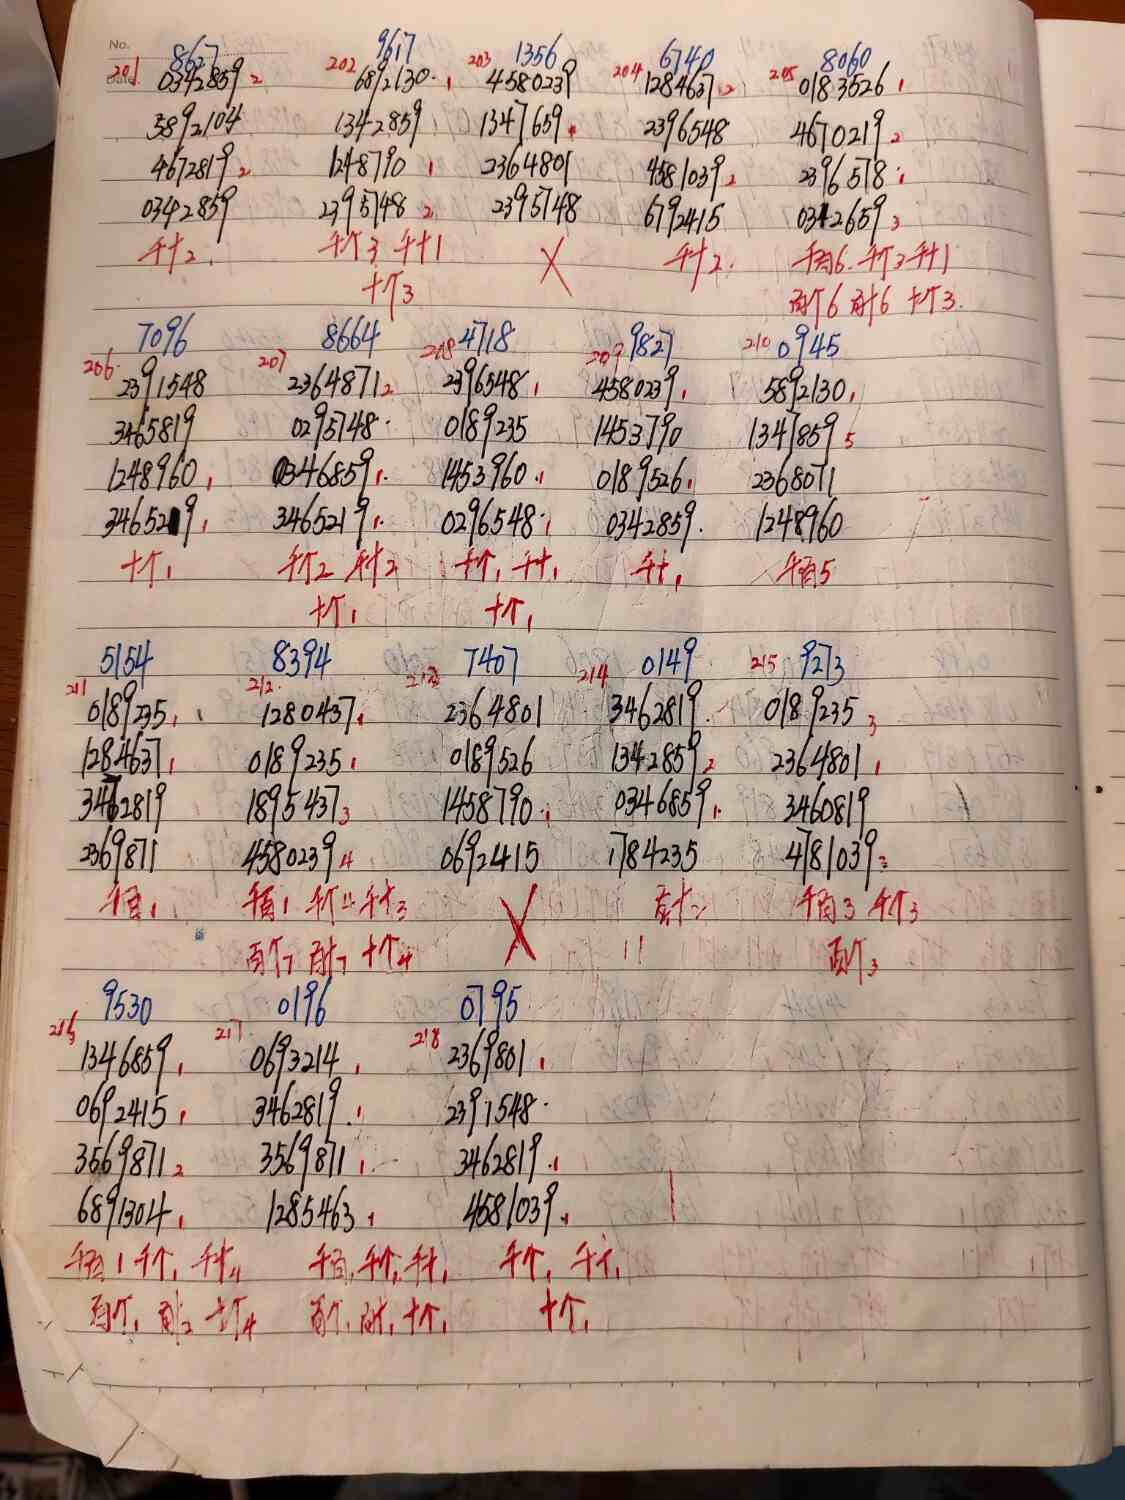 No.
8627 9617 1356 6740 8060
201 0342859 2 202 6892130 1 203 4580239 204 1284637 2 205 0183526 1
5892104 1342859 1347659 2396548 4670219 2
4672819 2 1248790 1 2364801 4581039 2 2396518 1
0342859 2395748 2 2395748 6792415 0342659 3
千十2 千个3 千十1 X 千十2 千百6 千个3 千十1
十个3 百个6 百十6 十个3
7096 8664 4718 9827 0945
206 2391548 207 2364871 2 208 2396548 1 209 4580239 1 210 5892130 1
3465819 0295748 0189235 1453790 1347859 5
1248960 1 0346859 1 1453960 1 0189526 1 2368071
3465219 1 3465219 1 0296548 1 0342859 1248960
十个1 千个2 千十2 千个1 千十1 千十1 千百5
十个1 十个1
5154 8394 7407 0149 9273
211 0189235 1 212 1280437 1 213 2364801 214 3462819 215 0189235 3
1284637 1 0189235 1 0189526 1342859 2 2364801 1
3462819 1895437 3 1458790 1 0346859 1 3460819
2369871 4580239 4 0692415 1784235 4781039 3
千百1 千百1 千个11 千十3 X 百十2 千百3 千个3
百个7 百十7 十个4 百个3
9530 0196 0795
216 1346859 1 217 0693214 1 218 2369801 1
0692415 1 3462819 1 2391548
3569871 2 3569871 1 3462819 1
6891304 1 1285463 1 4581039 1
千百1 千个1 千十11 千百1 千个1 千十1 千个1 千十1
百个1 百十2 十个4 百个1 百十1 十个1 十个1